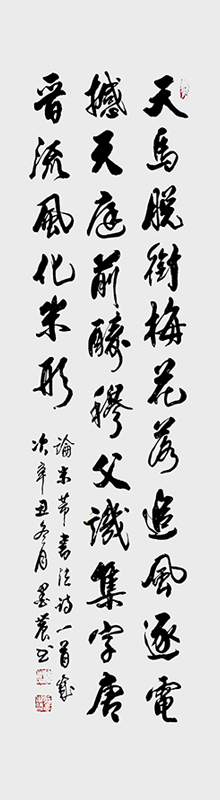 天馬脱銜梅花落追風逐電
撼天庭前酸穆父識集字唐
晋流風化米形
論米芾書法詩一首歲
次辛丑冬月墨農書